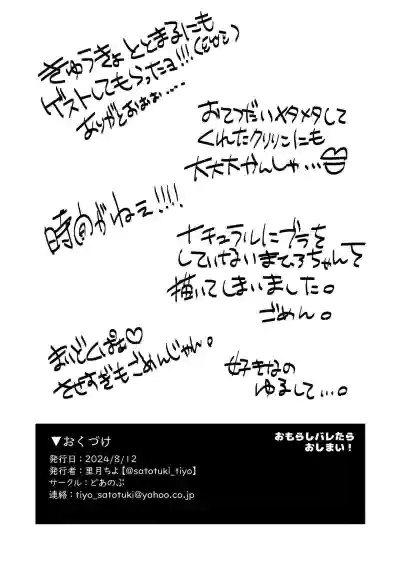 きゅうきょととまるにも
ゲストしてもらったヨ!!!
ありがとおぉぉ……
おてつだいメタメタして
くれたクリリンにも
大大大かんしゃ…
時間がねェ!!!!
ナチュラルにブラを
していないまひろちゃんを
描いてしまいました。
ごめん。
まいどくぱぁ♡
させすぎもごめんじゃん。
好きなの
ゆるして…。
▼おくづけ
発行日：2024/8/12
発行者：里月ちよ【@satotuki_tiyo】
サークル：どあのぶ
連絡：tiyo_satotuki@yahoo.co.jp
おもらしバレたら
おしまい！